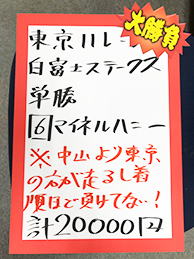 大勝負
東京11レース
白富士ステークス
単勝
6マイネルハニー
※中山より東京
の方が走るし着
順ほど負けてない!
計20000円